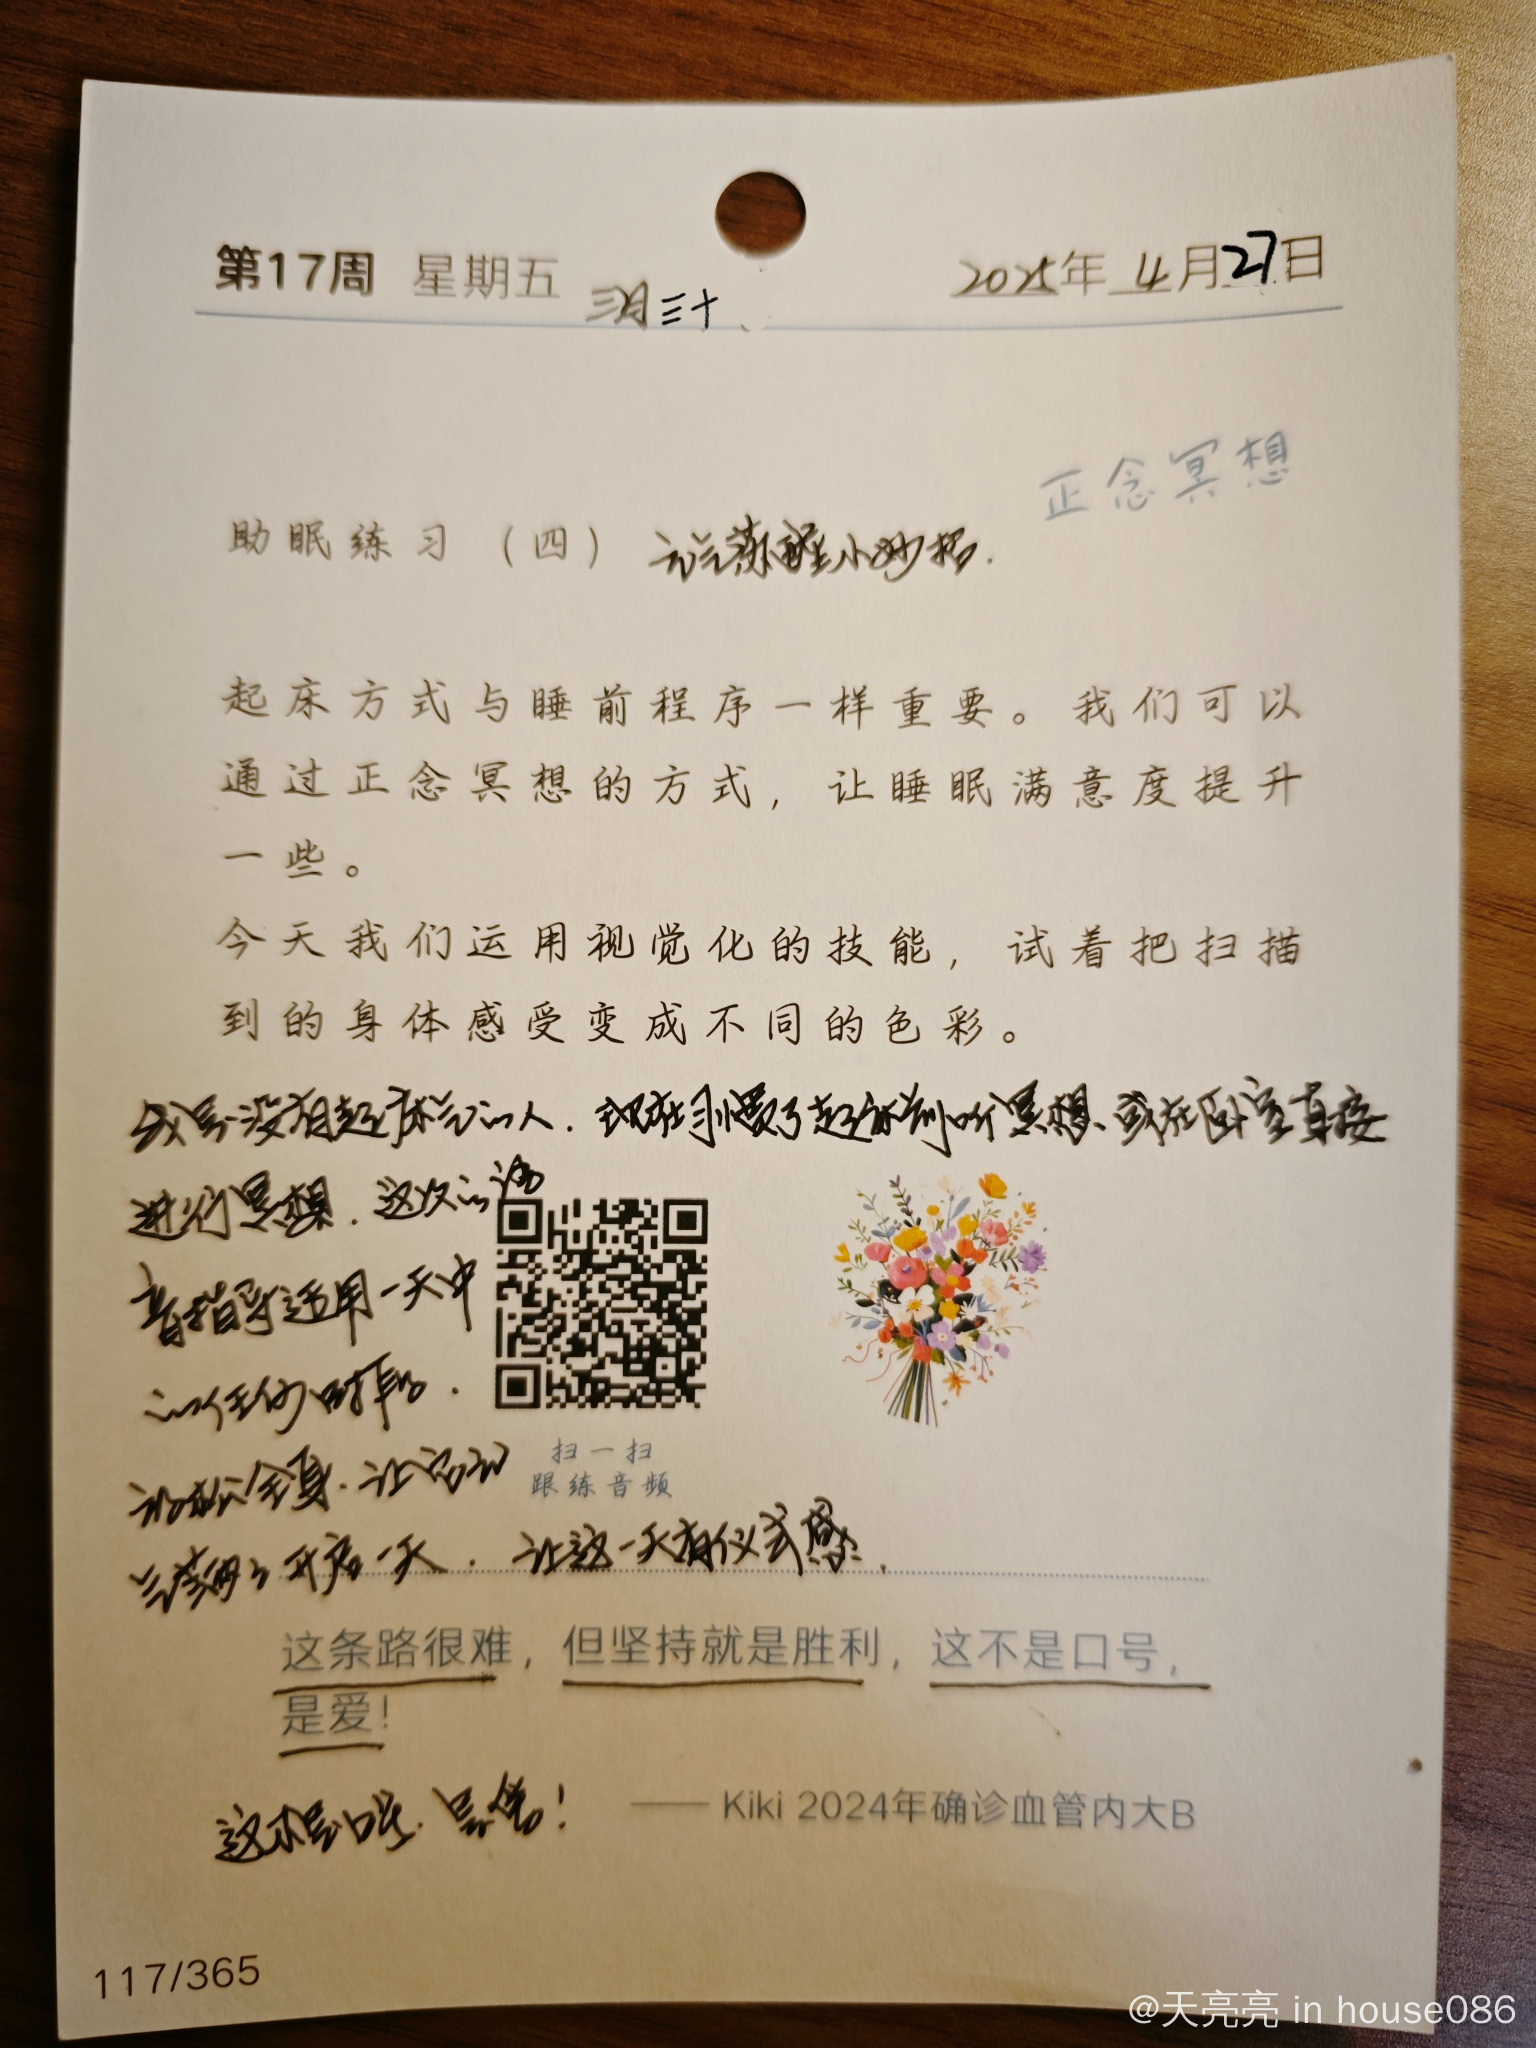 第17周 星期五 三月三十
2025年 4月27日
正念冥想
助眠练习（四） 元气苏醒小妙招.
起床方式与睡前程序一样重要。我们可以
通过正念冥想的方式，让睡眠满意度提升
一些。
今天我们运用视觉化的技能，试着把扫描
到的身体感受变成不同的色彩。
我是没有起床气的人. 现在习惯了起床前听冥想、或在卧室直接
进行冥想. 这次的语
音指导适用一天中
的任何时段.
放松全身. 让
元气满满开启一天. 让这一天有仪式感.
扫一扫
跟练音频
这条路很难，但坚持就是胜利，这不是口号，
是爱!
这不是口号. 是!
—— Kiki 2024年确诊血管内大B
117/365
@天亮亮 in house086